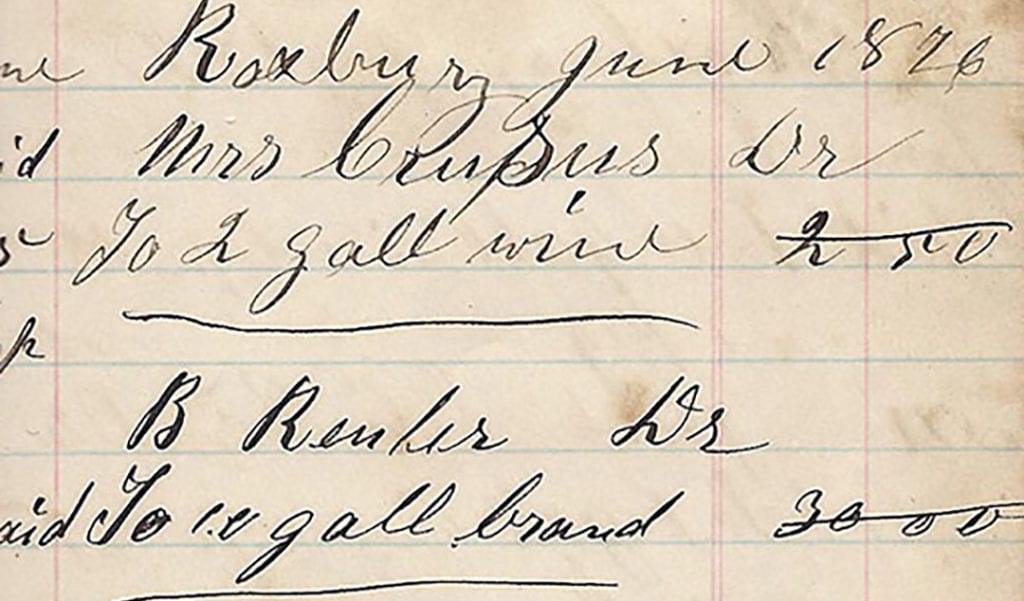 me Roxbury June 1876
id Mrs Crusius Dr
To 2 gall wine 2 50
B Renher Dr
aid To 10 gall brand 30 00